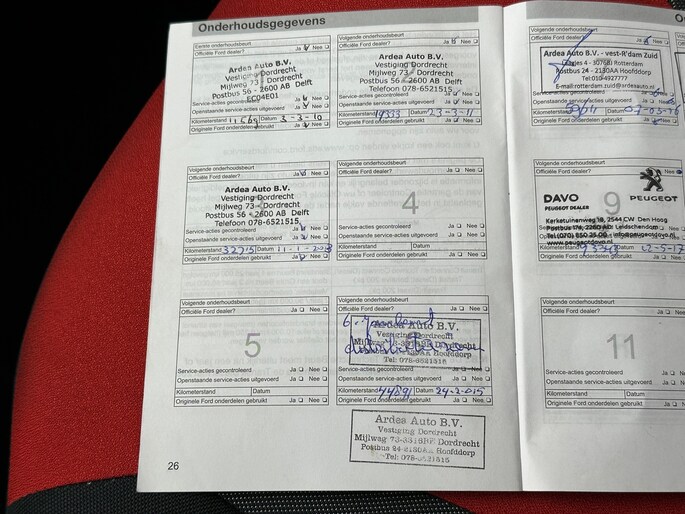 Onderhoudsgegevens
Eerste onderhoudsbeurt
Officiële Ford dealer? Ja Nee
Ardea Auto B.V.
Vestiging Dordrecht
Mijlweg 73 - Dordrecht
Postbus 56 - 2600 AB Delft
EC04E01
Service-acties gecontroleerd Ja Nee
Openstaande service-acties uitgevoerd Ja Nee
Kilometerstand Datum 3-3-10
Originele Ford onderdelen gebruikt Ja Nee
Volgende onderhoudsbeurt
Officiële Ford dealer? Ja Nee
Ardea Auto B.V.
Vestiging Dordrecht
Mijlweg 73 - Dordrecht
Postbus 56 - 2600 AB Delft
Telefoon 078-6521515
Service-acties gecontroleerd Ja Nee
Openstaande service-acties uitgevoerd Ja Nee
Kilometerstand 19333 Datum 23-3-11
Originele Ford onderdelen gebruikt Ja Nee
Volgende onderhoudsbeurt
Officiële Ford dealer? Ja Nee
Ardea Auto B.V.
Vestiging Dordrecht
Mijlweg 73 - Dordrecht
Postbus 56 - 2600 AB Delft
Telefoon 078-6521515
Service-acties gecontroleerd Ja Nee
Openstaande service-acties uitgevoerd Ja Nee
Kilometerstand Datum
Originele Ford onderdelen gebruikt Ja Nee
Volgende onderhoudsbeurt
Officiële Ford dealer? Ja Nee
4
Service-acties gecontroleerd Ja Nee
Openstaande service-acties uitgevoerd Ja Nee
Kilometerstand Datum
Originele Ford onderdelen gebruikt Ja Nee
Volgende onderhoudsbeurt
Officiële Ford dealer? Ja Nee
5
Service-acties gecontroleerd Ja Nee
Openstaande service-acties uitgevoerd Ja Nee
Kilometerstand Datum
Originele Ford onderdelen gebruikt Ja Nee
Volgende onderhoudsbeurt
Officiële Ford dealer? Ja Nee
Ardea Auto B.V.
Vestiging Dordrecht
Service-acties gecontroleerd Ja Nee
Openstaande service-acties uitgevoerd Ja Nee
Kilometerstand Datum 24-2-2015
Originele Ford onderdelen gebruikt Ja Nee
Ardea Auto B.V.
Vestiging Dordrecht
Mijlweg 73-3316BE Dordrecht
Postbus 24 2130AA Hoofddorp
Tel: 078-6521515
26
Volgende onderhoudsbeurt
Officiële Ford dealer? Ja Nee
Ardea Auto B.V. - vest-R'dam Zuid
Postbus 24 - 2130AA Hoofddorp
E-mail:rotterdam.zuid@ardeaauto.nl
Openstaande service-acties uitgevoerd
Kilometerstand Datum
Originele Ford onderdelen gebruikt Ja Nee
Volgende onderhoudsbeurt
Officiële Ford dealer? Ja Nee
9
DAVO PEUGEOT
PEUGEOT DEALER
Kerketuinenweg 18, 2544 CW Den Hoag
Leidschendam
www.peugeotdavo.nl
Originele Ford onderdelen gebruikt Ja Nee
Volgende onderhoudsbeurt
Officiële Ford dealer? Ja Nee
11
Service-acties gecontroleerd Ja Nee
Openstaande service-acties uitgevoerd Ja Nee
Kilometerstand Datum
Originele Ford onderdelen gebruikt Ja Nee